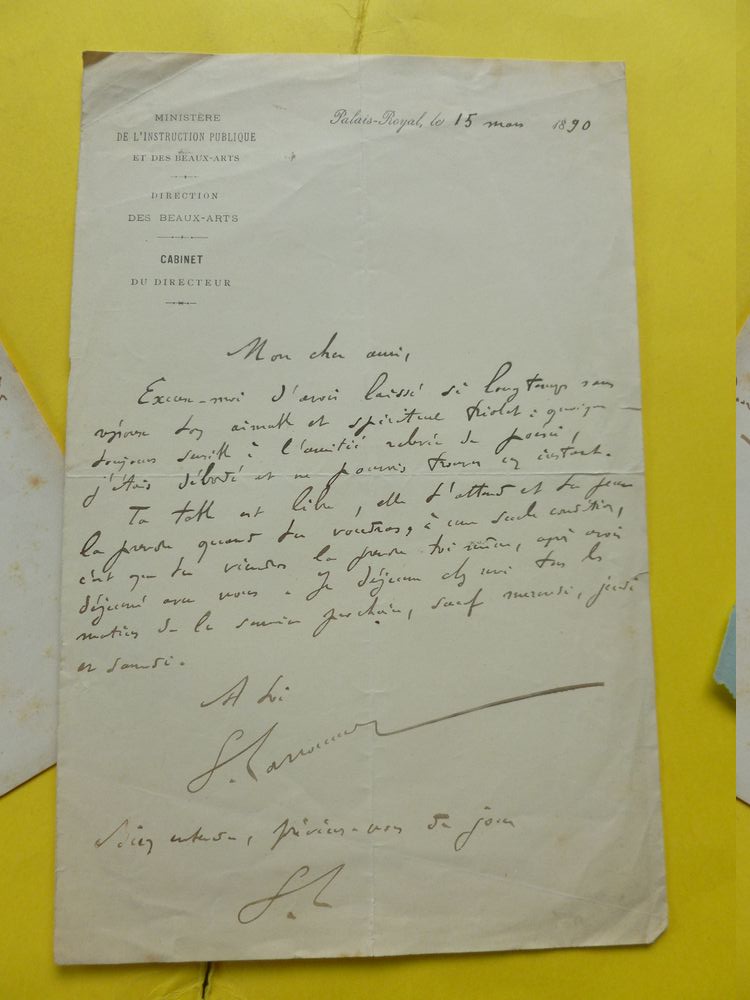 MINISTÈRE
DE L'INSTRUCTION PUBLIQUE
ET DES BEAUX-ARTS
DIRECTION
DES BEAUX-ARTS
CABINET
DU DIRECTEUR
Palais-Royal, le 15 mars 1890
Mon cher ami,
Excuse-moi d'avoir laissé si longtemps sans
réponse ton aimable et spirituel triolet : quoique
toujours sensible à l'amitié relevée de poésie,
j'étais débordé et ne pouvais trouver un instant.
Ta table est libre, elle t'attend et tu peux
la prendre quand tu voudras, à une seule condition,
c'est que tu viendras la prendre toi même, après avoir
déjeuné avec nous. Je déjeune chez moi tous les
matins de la semaine prochaine, sauf mercredi, jeudi
et samedi.
A toi
G. Larroumet
Bien entendu, préviens-nous du jour
G. L